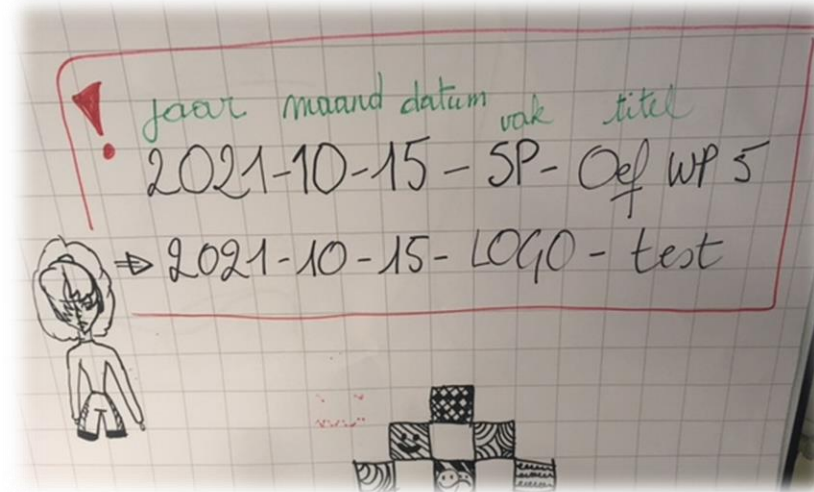 jaar maand datum vak titel
2021-10-15 - SP - Oef WP 5
⇒ 2021-10-15 - LOGO - test